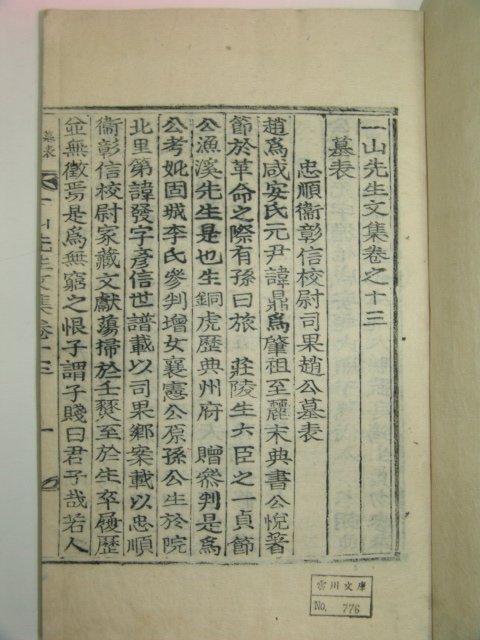 一山先生文集卷之十三
墓表
忠順衞彰信校尉司果趙公墓表
趙爲咸安氏元尹諱鼎爲肇祖至麗末典書公悅著
節於革命之際有孫曰旅 莊陵生六臣之一貞節
公漁溪先生是也生銅虎歷典州府 贈參判是爲
公考妣固城李氏參判增女襄憲公原孫公生於院
北里第諱發字彥信世譜載以司果鄕案載以忠順
衞彰信校尉家藏文獻蕩掃於壬燹至於生卒履歷
並無徵焉是爲無窮之恨子謂子賤曰君子哉若人
墓表
一山先生文集卷十三
一
雪川文庫
No. 776